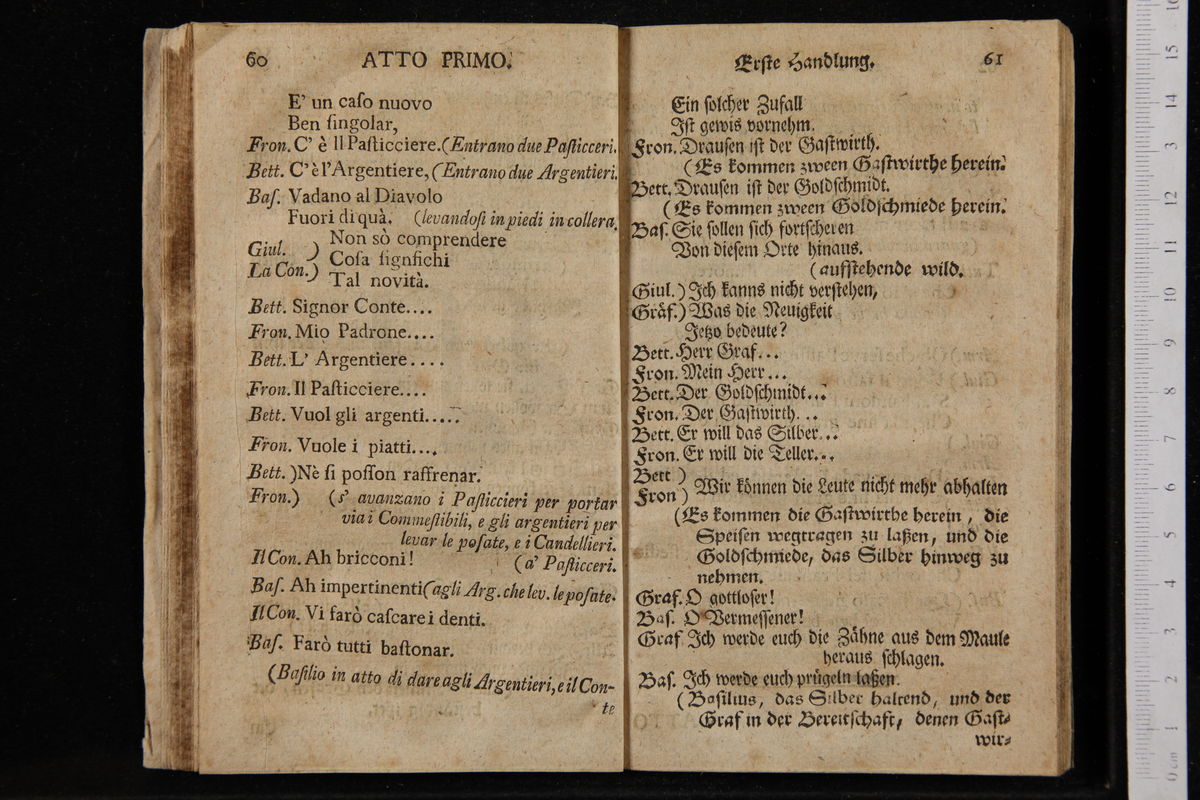 60 ATTO PRIMO.
E' un caſo nuovo
Ben ſingolar,
Fron. C' è Il Paſticciere. (Entrano due Paſticceri.
Bett. C' è l'Argentiere, (Entrano due Argentieri.
Baſ. Vadano al Diavolo
Fuori di quà. (levandoſi in piedi in collera.
Giul. ) Non sò comprendere
La Con.) Coſa ſignfichi
Tal novità.
Bett. Signor Conte....
Fron. Mio Padrone....
Bett. L' Argentiere....
Fron. Il Paſticciere....
Bett. Vuol gli argenti.....
Fron. Vuole i piatti....
Bett. )Nè ſi poſſon raffrenar.
Fron.) (s' avanzano i Paſticcieri per portar
via i Commeſtibili, e gli argentieri per
levar le poſate, e i Candellieri.
Il Con. Ah bricconi! (a' Paſticceri.
Baſ. Ah impertinenti (agli Arg. che lev. le poſate.
Il Con. Vi farò caſcare i denti.
Baſ. Farò tutti baſtonar.
(Baſilio in atto di dare agli Argentieri, e il Con-
te
Erſte Handlung. 61
Ein ſolcher Zufall
Iſt gewis vornehm.
Fron. Drauſen iſt der Gaſtwirth.
(Es kommen zween Gaſtwirthe herein.
Bett. Drauſen iſt der Goldſchmidt.
(Es kommen zween Goldſchmiede herein.
Baſ. Sie ſollen ſich fortſcheren
Von dieſem Orte hinaus.
(aufſtehende wild.
Giul.) Ich kanns nicht verſtehen,
Gräf.) Was die Neuigkeit
Jetzo bedeute?
Bett. Herr Graf...
Fron. Mein Herr...
Bett. Der Goldſchmidt...
Fron. Der Gaſtwirth...
Bett. Er will das Silber...
Fron. Er will die Teller...
Bett )
Fron ) Wir können die Leute nicht mehr abhalten
(Es kommen die Gaſtwirthe herein, die
Speiſen wegtragen zu laßen, und die
Goldſchmiede, das Silber hinweg zu
nehmen.
Graf. O gottloſer!
Baſ. O Vermeſſener!
Graf Ich werde euch die Zähne aus dem Maule
heraus ſchlagen.
Baſ. Ich werde euch prügeln laßen.
(Baſilius, das Silber haltend, und der
Graf in der Bereitſchaft, denen Gaſt⸗
wir⸗
10 11 12 13 14 15 16
9 8 7 6 5 4 3 2 1 0 cm